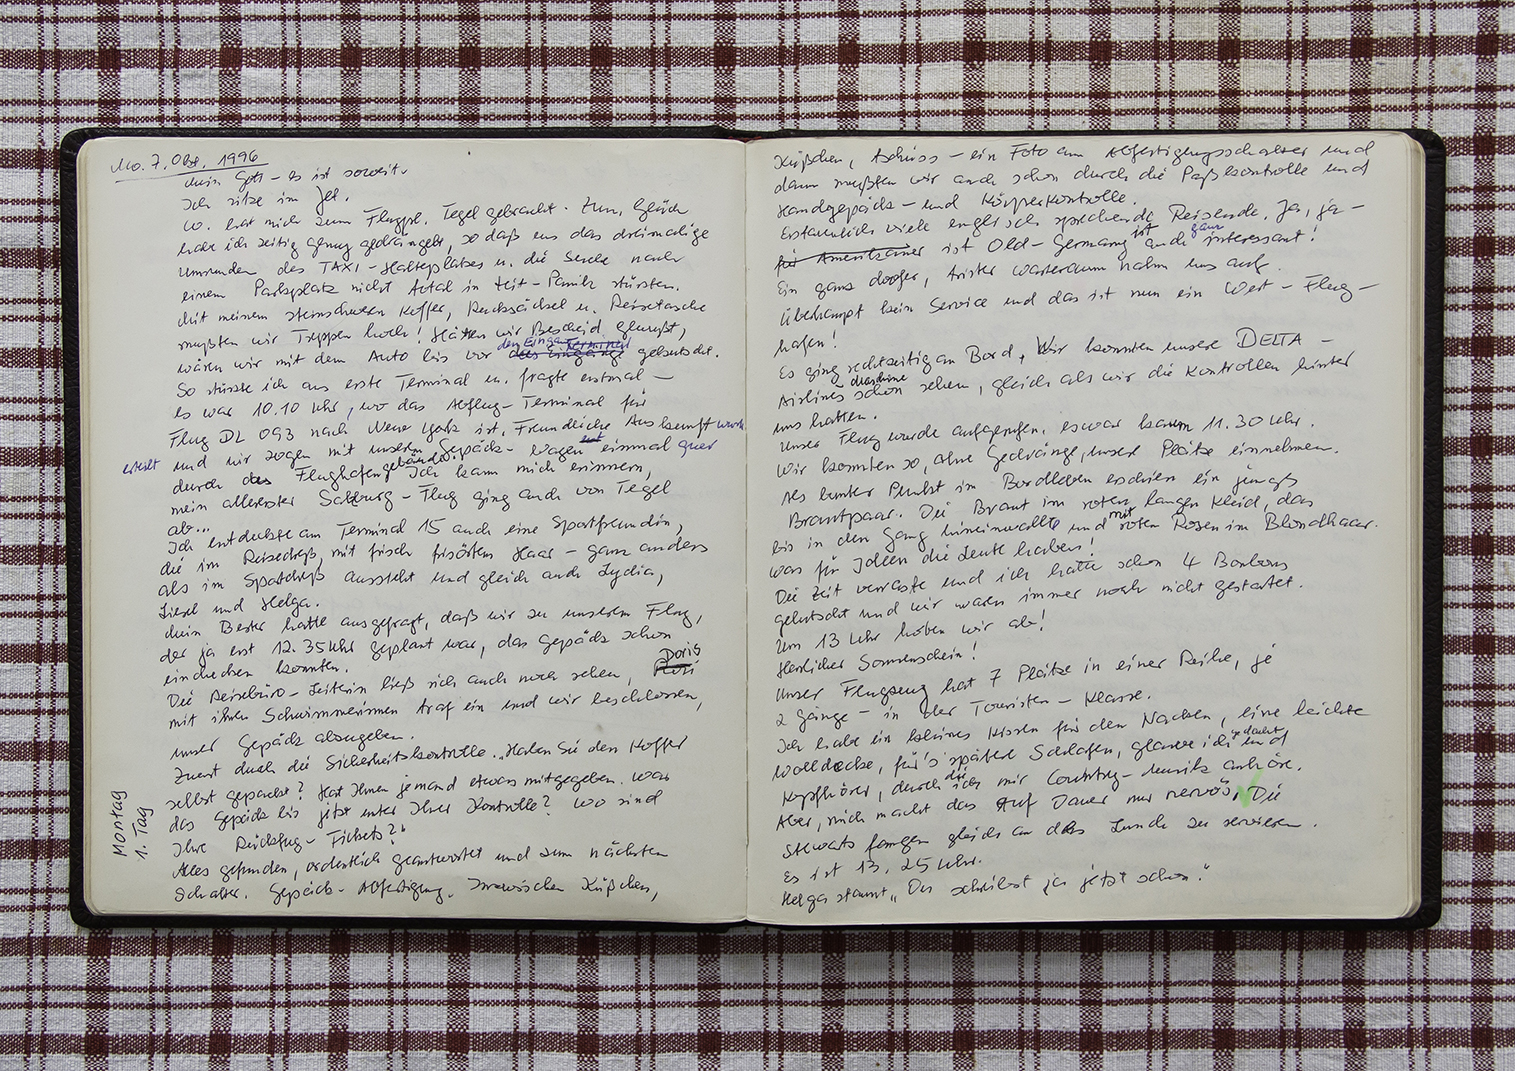 Mo. 7. Okt. 1996
Mein Gott – es ist soweit.
Ich sitze im Jet.
W. hat mich zum Flugpl. Tegel gebracht. Zum Glück
habe ich zeitig genug gedrängelt, so daß uns das dreimalige
Umrunden des TAXI-Halteplatzes u. die Suche nach
einem Parkplatz nicht total in Zeit-Panik stürzten.
Mit meinem steinschweren Koffer, Rucksäcksel u. Reisetasche
mußten wir Treppen hoch! Hätten wir Bescheid gewußt,
wären wir mit dem Auto bis vor den Eingang Terminal gekutscht.
So stürzte ich ans erste Terminal u. fragte erstmal –
es war 10.10 Uhr, wo das Abflug-Terminal für
Flug DL 093 nach New York ist. Freundliche Auskunft wurde
erteilt und wir zogen mit unserem Gepäck-Wagen einmal quer
durch das Flughafengebäude. Ich kann mich erinnern,
mein allererster Salzburg-Flug ging auch von Tegel
ab...
Ich entdeckte am Terminal 15 auch eine Sportfreundin,
die im Reisedreß, mit frisch frisörtem Haar – ganz anders
als im Sportdreß aussieht und gleich auch Lydia,
Liesel und Helga.
Mein Bester hatte ausgefragt, daß wir zu unserem Flug,
der ja erst 12.35 Uhr geplant war, das Gepäck schon
einchecken konnten.
Die Reisebüro-Leiterin ließ sich auch noch sehen, Doris
mit ihren Schwimmerinnen traf ein und wir beschlossen,
unser Gepäck abzugeben.
Zuerst durch die Sicherheitskontrolle. „Haben Sie den Koffer
selbst gepackt? Hat Ihnen jemand etwas mitgegeben. War
das Gepäck bis jetzt unter Ihrer Kontrolle? Wo sind
Ihre Rückflug-Tickets?"
Alles gefunden, ordentlich geantwortet und zum nächsten
Schalter. Gepäck-Abfertigung. Inzwischen Küßchen,
Montag
1. Tag
Küßchen, tschüss – ein Foto am Abfertigungsschalter und
dann mußten wir auch schon durch die Paßkontrolle und
Handgepäck- und Körperkontrolle.
Erstaunlich viele englisch sprechende Reisende. Ja, ja –
für Amerikaner ist Old-Germany ist auch ganz interessant!
Ein ganz doofer, trister Warteraum nahm uns auf.
Überhaupt kein Service und das ist nun ein West-Flug-
hafen!
Es ging rechtzeitig an Bord. Wir konnten unsere DELTA-
Airlines Maschine schon sehen, gleich als wir die Kontrollen hinter
uns hatten.
Unser Flug wurde aufgerufen, es war kaum 11.30 Uhr.
Wir konnten so, ohne Gedränge, unsere Plätze einnehmen.
Als bunter Punkt im Bordleben erschien ein junges
Brautpaar. Die Braut im roten, langen Kleid, das
bis in den Gang hineinwallte und mit roten Rosen im Blondhaar.
Was für Ideen die Leute haben!
Die Zeit verrasste und ich hatte schon 4 Bonbons
gelutscht und wir waren immer noch nicht gestartet.
Um 13 Uhr hoben wir ab!
Herrlicher Sonnenschein!
Unser Flugzeug hat 7 Plätze in einer Reihe, je
2 Gänge – in der Touristen-Klasse.
Ich habe ein kleines Kissen für den Nacken, eine leichte
Wolldecke, für's spätere Schlafen, glaube ich gedacht und
Kopfhörer, durch die ich mir Country-Musik anhöre.
Aber, mich macht das auf Dauer nur nervös. Die
Stewarts fangen gleich an das Lunch zu servieren.
Es ist 13.25 Uhr.
Helga staunt „Du schreibst ja jetzt schon."